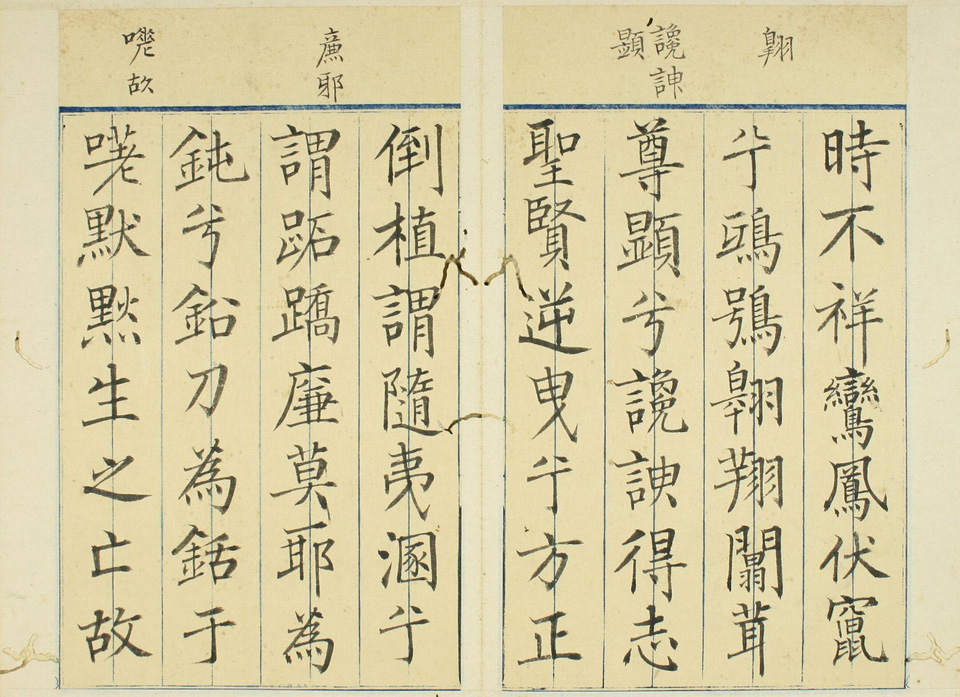 翱
讒諛
顯
廉邪
嗟故
時不祥鸞鳳伏竄
兮鴟鴞翱翔闒茸
尊顯兮讒諛得志
聖賢逆曳兮方正
倒植謂隨夷溷兮
謂跖蹻廉莫耶為
鈍兮鉛刀為銛于
嗟默默生之亡故